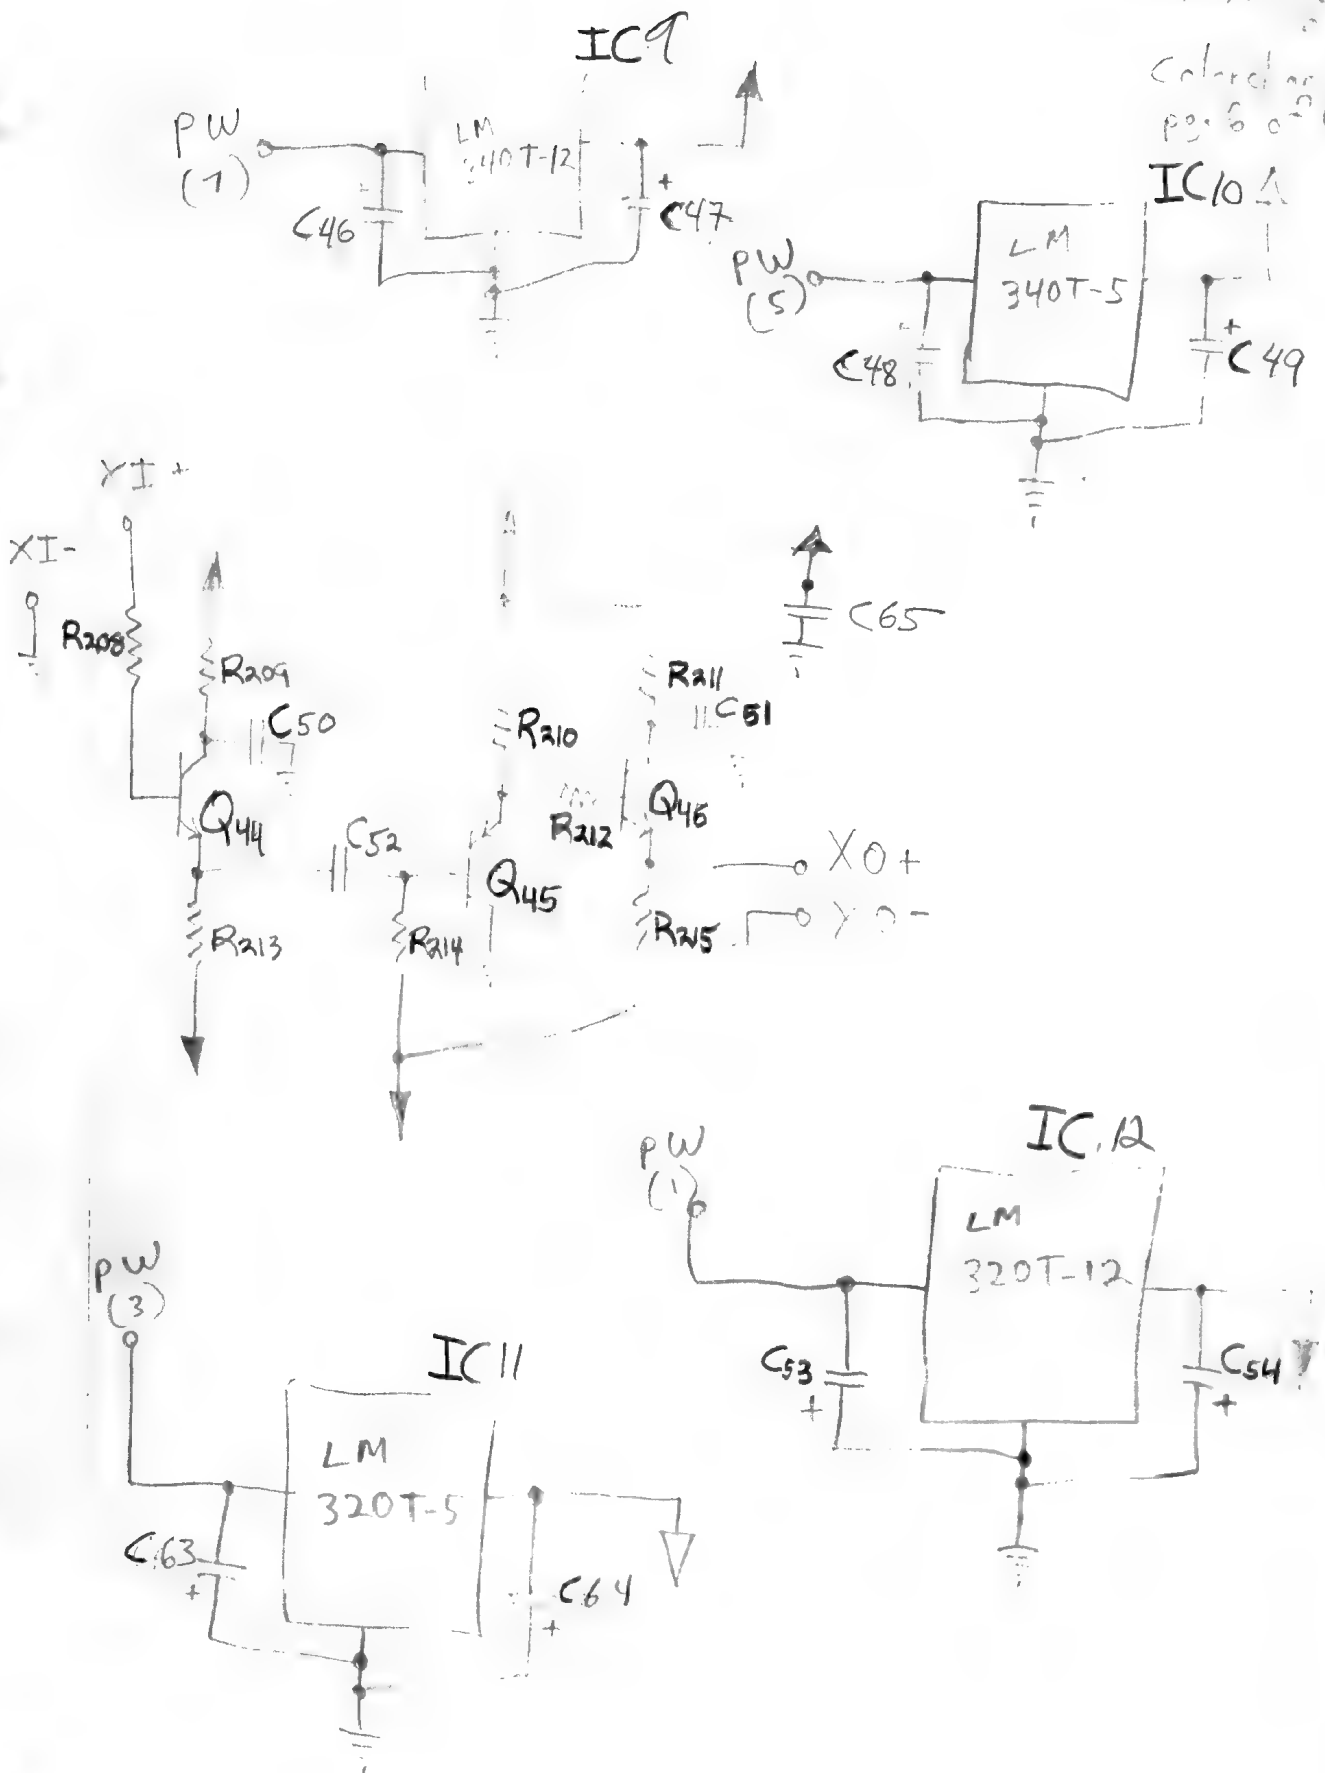 IC9
PW
(7)
LM
340T-12
C46
+
C47
pg. 6 of
IC10
PW
(5)
LM
340T-5
C48
+
C49
XI+
XI-
R208
R209
C50
Q44
R213
C52
R214
R210
Q45
R211
C51
R212
Q46
R215
C65
XO+
XO-
PW
(1)
IC12
LM
320T-12
C53
+
C54
+
PW
(3)
IC11
LM
320T-5
C63
+
C64
+